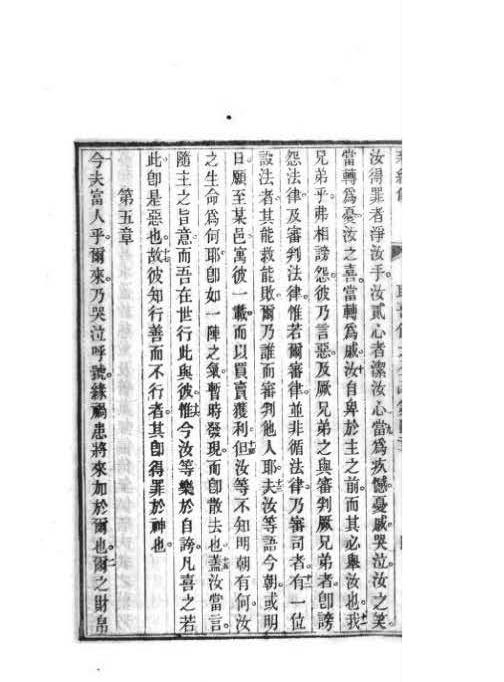 汝得罪者淨汝手汝貳心者潔汝心當爲疚憾憂慼哭泣汝之笑
當轉爲憂汝之喜當轉爲慼汝自卑於主之前而其必舉汝也我
兄弟乎弗相謗怨彼乃言惡及厥兄弟之與審判厥兄弟者卽謗
怨法律及審判法律惟若爾審律並非循法律乃審司者有一位
設法者其能救能敗爾乃誰而審判他人耶夫汝等語今朝或明
日願至某邑寓彼一載而以買賣獲利但汝等不知明朝有何汝
之生命爲何耶卽如一陣之氣暫時發現而卽散去也蓋汝當言
隨主之旨意而吾在世行此與彼惟今汝等樂於自誇凡喜之若
此卽是惡也故彼知行善而不行者其卽得罪於神也
第五章
今夫富人乎爾來乃哭泣呼號緣禍患將來加於爾也爾之財帛